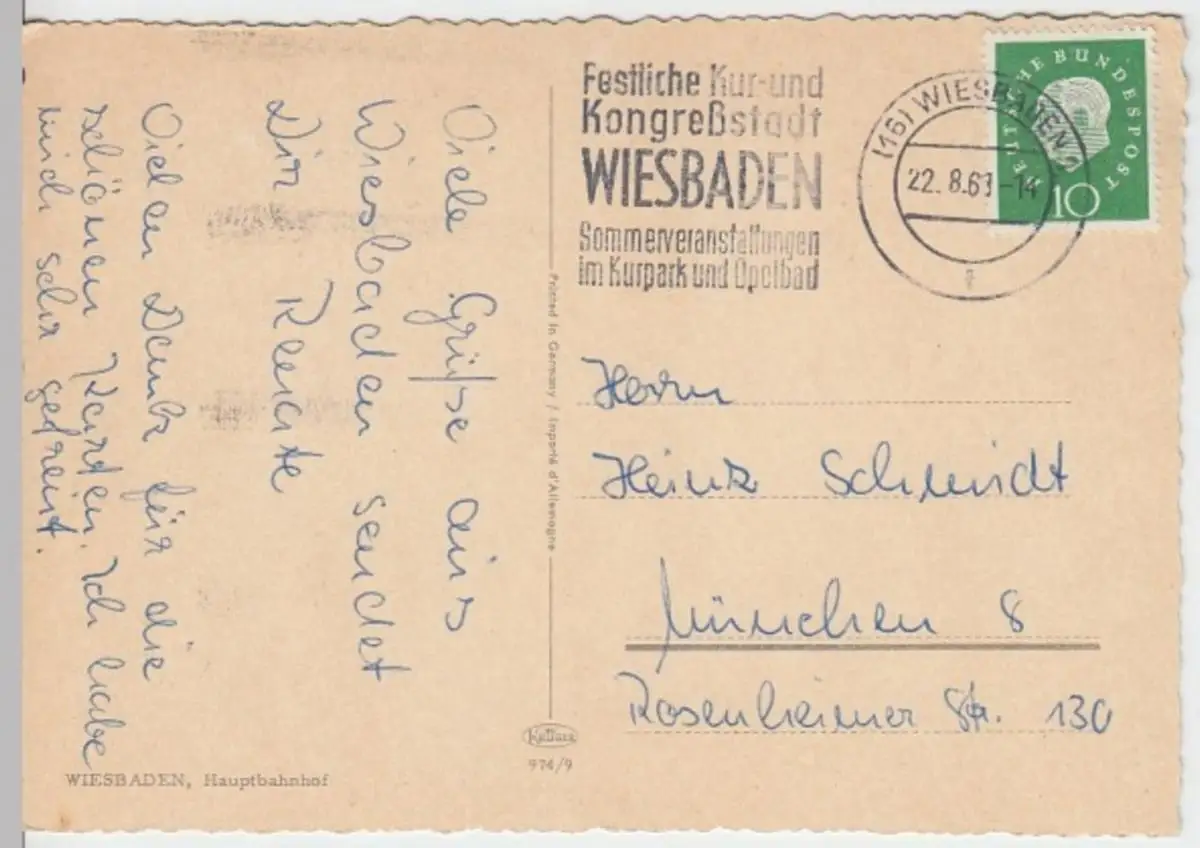 Viele Grüße aus
Wiesbaden sendet
Dir Renate
Vielen Dank für die
schönen Karten. Ich habe
mich sehr gefreut.
WIESBADEN, Hauptbahnhof
Printed in Germany / Importé d'Allemagne
974/9
Festliche Kur-und
Kongreßstadt
WIESBADEN
Sommerveranstaltungen
im Kurpark und Opelbad
(16) WIESBADEN 2
22. 8.61-14
DEUTSCHE BUNDESPOST
10
Herrn
Heinz Schmidt
München 8
Rosenheimer Str. 130